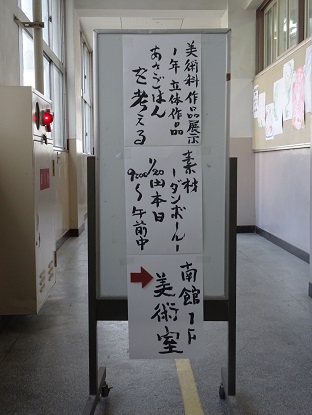 美術科 作品展示
1年 立体作品
あさごはん
を考える
素材
ーダンボールー
1/20田本日
9:00〜午前中
南館1F
美術室